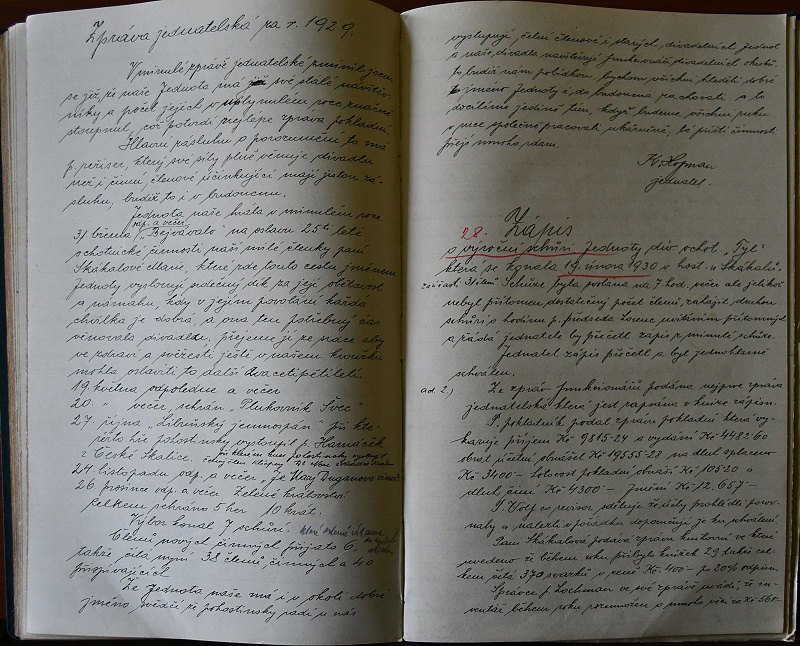 Zpráva jednatelská za r. 1929.
V minulé zprávě jednatelské zmínil jsem
se již, že naše Jednota má své stálé návštěv-
níky a počet jejich v uplynulém roce značně
stoupnul, což potvrdí nejlépe zpráva pokladní.
Hlavní zásluhu a porozumění to má
p. režiser, který své síly plně věnuje divadlu
než i činní členové účinkující mají jistou zá-
sluhu, budiž to i v budoucnu.
Jednota naše hrála v minulém roce
odp. a večer
31 března „Bejvávalo" na oslavu 25ti leté
ochotnické činnosti naší milé členky paní
Skákalové Marie, které zde touto cestou jménem
Jednoty vyslovuji srdečný dík za její obětavost
a námahu, kdy v jejím povolání každá
chvilka je dobrá, a ona ten potřebný čas
věnovala divadlu, přejeme jí ze srdce aby
ve zdraví a svěžesti ještě v našem kroužku
mohla oslaviti to další dvacetipětiletí.
19. května odpoledne a večer
20. večer, sehrán „Plukovník Švec"
27. října „Lešetínský
kterto hře pohostinsky vystoupil p. Hamáček
z České Skalice.
24. listopadu odp. a večer
26. prosince odp. a večer Zelené království
Celkem sehráno 5 her 10 krát.
Výbor konal 7 schůzí.
Členů nových činných přijato 6,
takže čítá nyní 38 členů činných a 40
přispívajících
Že Jednota naše má i v okolí dobré
jméno svědčí že pohostinsky rádi u nás
vystupují, čelní členové i starých, divadelních jednot
a naše divadla navštěvují funkcionáři divadelních okrsků,
to budiž nám pobídkou bychom všichni hleděli dobré
jméno Jednoty i do budoucna zachovati a to
docílíme jedině tím, když budeme všichni ruku
v ruce společně pracovati ukázněně, ku příští činnosti
přeji mnoho zdaru.
K. Kopman
jednatel.
28. Zápis
o výroční schůzi Jednoty div. ochot. „Tyl"
která se konala 19. února 1930 v host. u Skákalů.
za účasti 31 členů Schůze byla svolána na 7 hod. večer ale jelikož
nebyl přítomen dostatečný počet členů, zahájil druhou
schůzi o hodinu p. předseda Lorenc uvítáním přítomných
a žádá jednatele by přečetl zápis z minulé schůze.
Jednatel zápis přečetl a byl jednohlasně
schválen.
ad. 2) Ze zpráv funkcionářů podána nejprve zpráva
jednatelská která jest zapsána v knize zápisů.
P. pokladník podal zprávu pokladní která vy-
kazuje příjem Kč 9815·24 a vydání Kč 4482·60
obrat účetní obnášel Kč 19555·28 na dluh splaceno
Kč 3400- hotovost pokladní obnáší Kč 105·20 a
dluh činí Kč 4300- Jmění Kč 12.657-
P. Volf co revisor sděluje že účty prohlédli porov-
naly a nalezli v pořádku doporučuje je ku schválení
Paní Skákalová podává zprávu knihovní ve které
uvedeno že během roku přibylo knížek 29 takže cel-
kem čítá 370 svazků v ceně Kč 400- po 20% odpisu.
Správce p. Lochman ve své zprávě uvádí, že in-
ventář během roku rozmnožen o mnoho věcí za Kč 561-